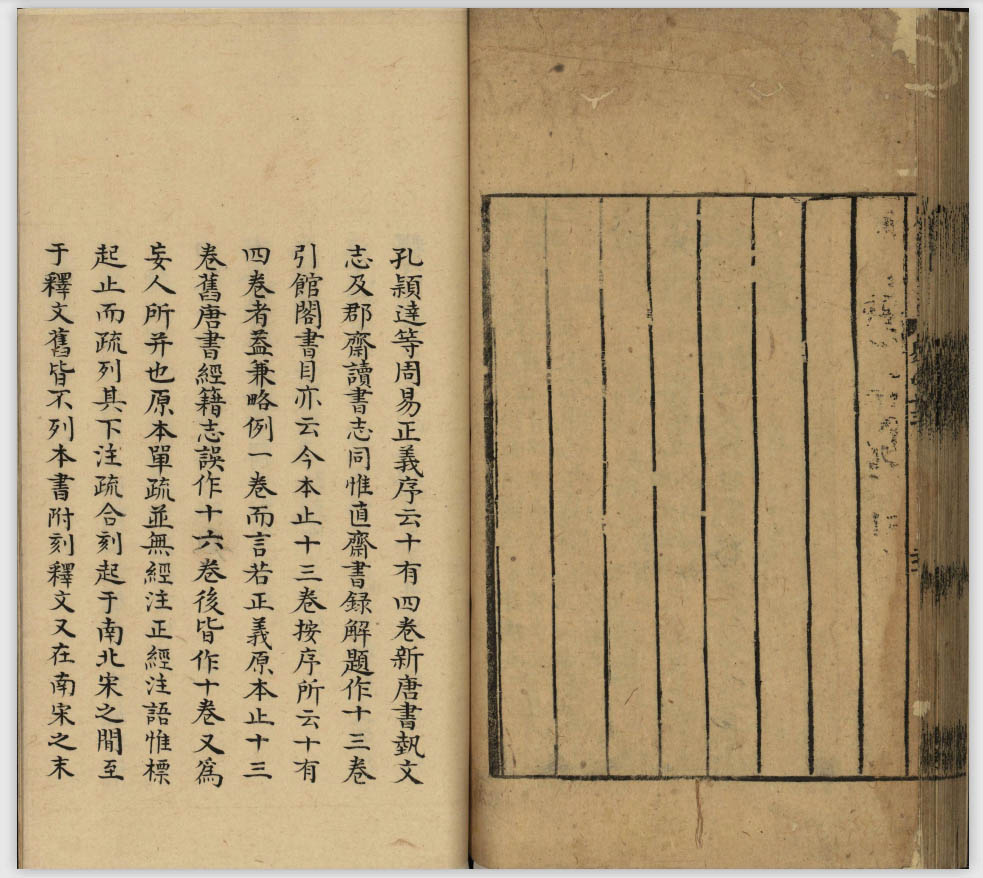 孔頴達等周易正義序云十有四卷新唐書埶文
志及郡齋讀書志同惟直齋書録解題作十三卷
引館閣書目亦云今本止十三卷按序所云十有
四卷者葢兼略例一卷而言若正義原本止十三
卷舊唐書經籍志誤作十六卷後皆作十卷又爲
妄人所并也原本單疏並無經注正經注語惟標
起止而疏列其下注疏合刻起于南北宋之閒至
于釋文舊皆不列本書附刻釋文又在南宋之末